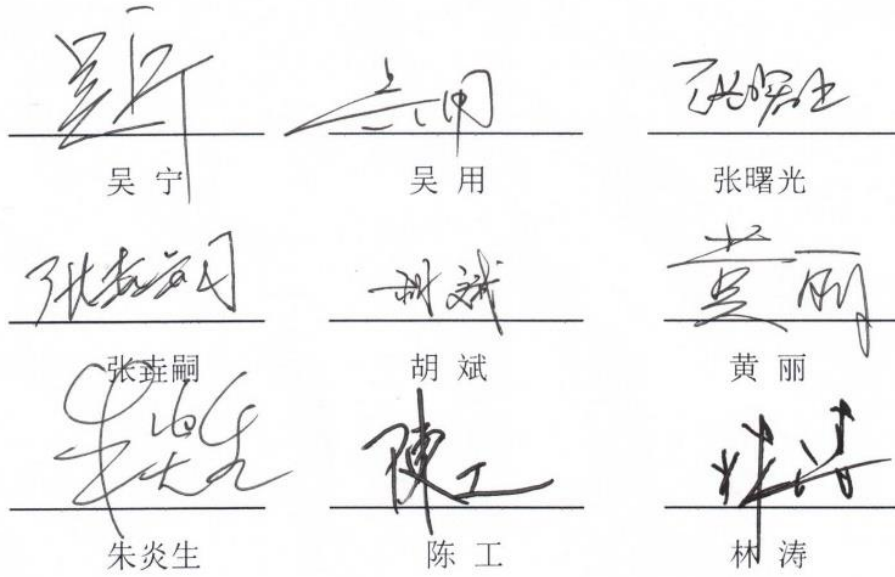 吴宁 吴用 张曙光
吴 宁 吴 用 张曙光
张垚嗣 胡斌 黄丽
张垚嗣 胡 斌 黄 丽
朱炎生 陈工 林涛
朱炎生 陈 工 林 涛